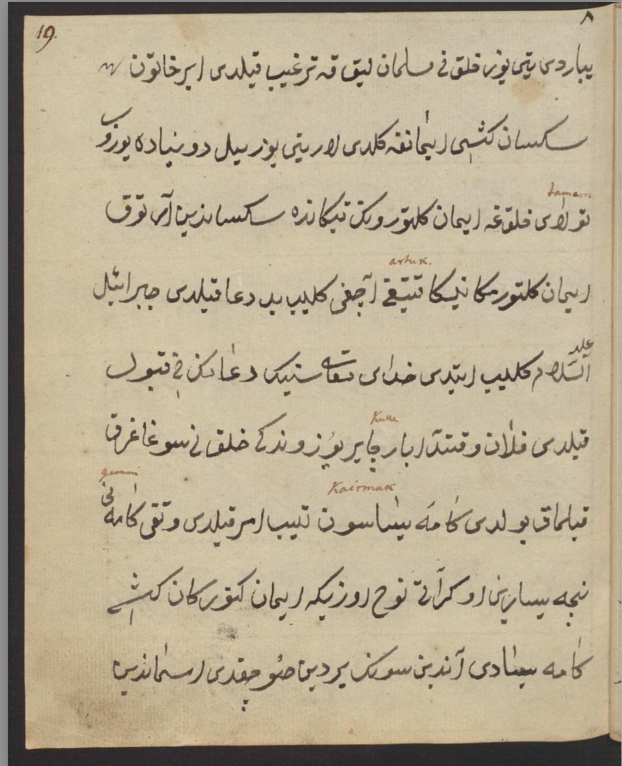 19.
٨
يباردى يتى يوز خلق نى مسلمان ليق قه ترغيب قيلدى اير خاتون
سكسان كشى ايمانغه كلدى لار يتى يوز ييل دونياده يوروب
tamam
تولاى خلق غه ايمان كلتورونكز تيكانده سكساندين آرتوق
artuk.
ايمان كلتورمكانيكا آچغى كليب بد دعا قيلدى جبرائيل
عليه
السلام كليب ايتدى خداى تعالى سنينك دعانكنى قبول
قيلدى فلان وقتدا بار جا ير يوزوندكى خلق نى سوغا غرق
قيلماق بولدى كامه يساسون تيب امر قيلدى وتقى كامه نى
Kairmak
نيچه يسارين اوكراتى نوح اوزيكه ايمان كتوركان كشى
كامه يسادى آندين سونك يردين صو چقدى اسماندين